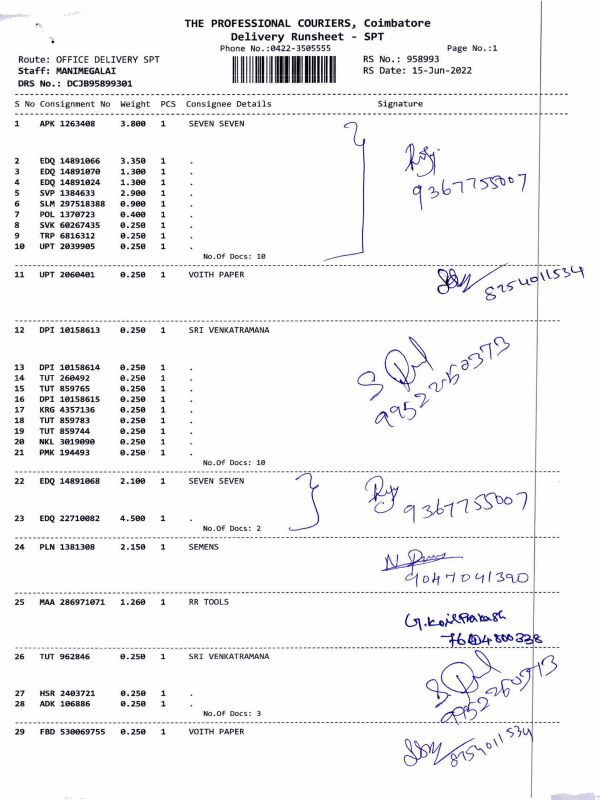 THE PROFESSIONAL COURIERS, Coimbatore
Delivery Runsheet - SPT
Phone No.:0422-3505555 Page No.:1
Route: OFFICE DELIVERY SPT RS No.: 958993
Staff: MANIMEGALAI RS Date: 15-Jun-2022
DRS No.: DCJB95899301
S No Consignment No Weight PCS Consignee Details Signature
1 APK 1263408 3.800 1 SEVEN SEVEN
9367755007
2 EDQ 14891066 3.350 1 .
3 EDQ 14891070 1.300 1 .
4 EDQ 14891024 1.300 1 .
5 SVP 1384633 2.900 1 .
6 SLM 297518388 0.900 1 .
7 POL 1370723 0.400 1 .
8 SVK 60267435 0.250 1 .
9 TRP 6816312 0.250 1 .
10 UPT 2039905 0.250 1 .
No.Of Docs: 10
11 UPT 2060401 0.250 1 VOITH PAPER
8754011534
12 DPI 10158613 0.250 1 SRI VENKATRAMANA
13 DPI 10158614 0.250 1 .
14 TUT 260492 0.250 1 .
15 TUT 859765 0.250 1 .
16 DPI 10158615 0.250 1 .
17 KRG 4357136 0.250 1 .
18 TUT 859783 0.250 1 .
19 TUT 859744 0.250 1 .
20 NKL 3019090 0.250 1 .
21 PMK 194493 0.250 1 .
No.Of Docs: 10
22 EDQ 14891068 2.100 1 SEVEN SEVEN
9367755007
23 EDQ 22710082 4.500 1 .
No.Of Docs: 2
24 PLN 1381308 2.150 1 SEMENS
9047041390
25 MAA 286971071 1.260 1 RR TOOLS
26 TUT 962846 0.250 1 SRI VENKATRAMANA
27 HSR 2403721 0.250 1 .
28 ADK 106886 0.250 1 .
No.Of Docs: 3
29 FBD 530069755 0.250 1 VOITH PAPER
8754011534